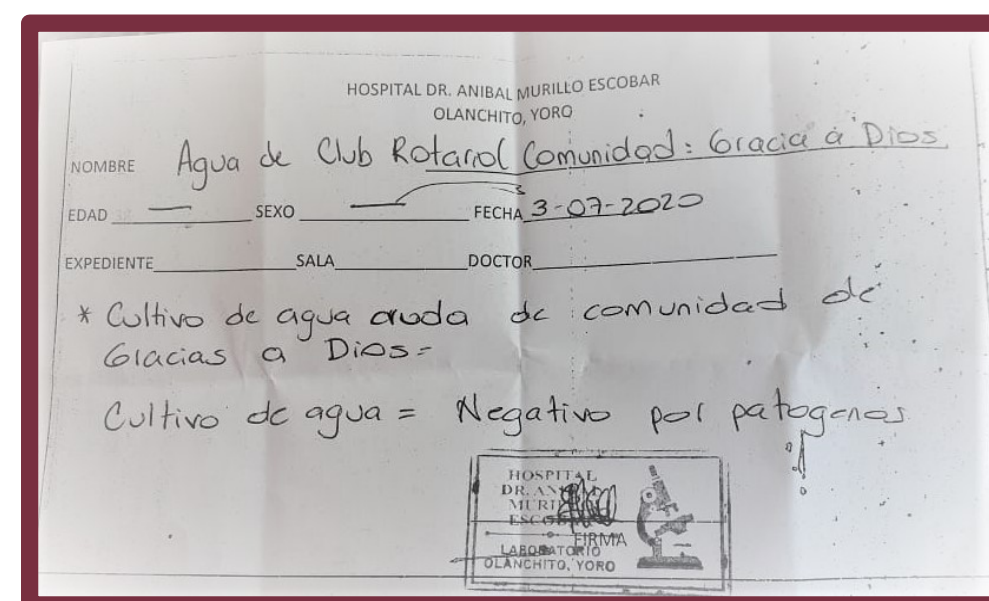 HOSPITAL DR. ANIBAL MURILLO ESCOBAR
OLANCHITO, YORO
NOMBRE Agua de Club Rotariol Comunidad: Gracia a Dios
EDAD — SEXO — FECHA 3-07-2020
EXPEDIENTE SALA DOCTOR
* Cultivo de agua cruda de comunidad de
Gracias a Dios=
Cultivo de agua = Negativo por patogenos
HOSPITAL
DR.
ESCOBAR
FIRMA
LABORATORIO
OLANCHITO, YORO